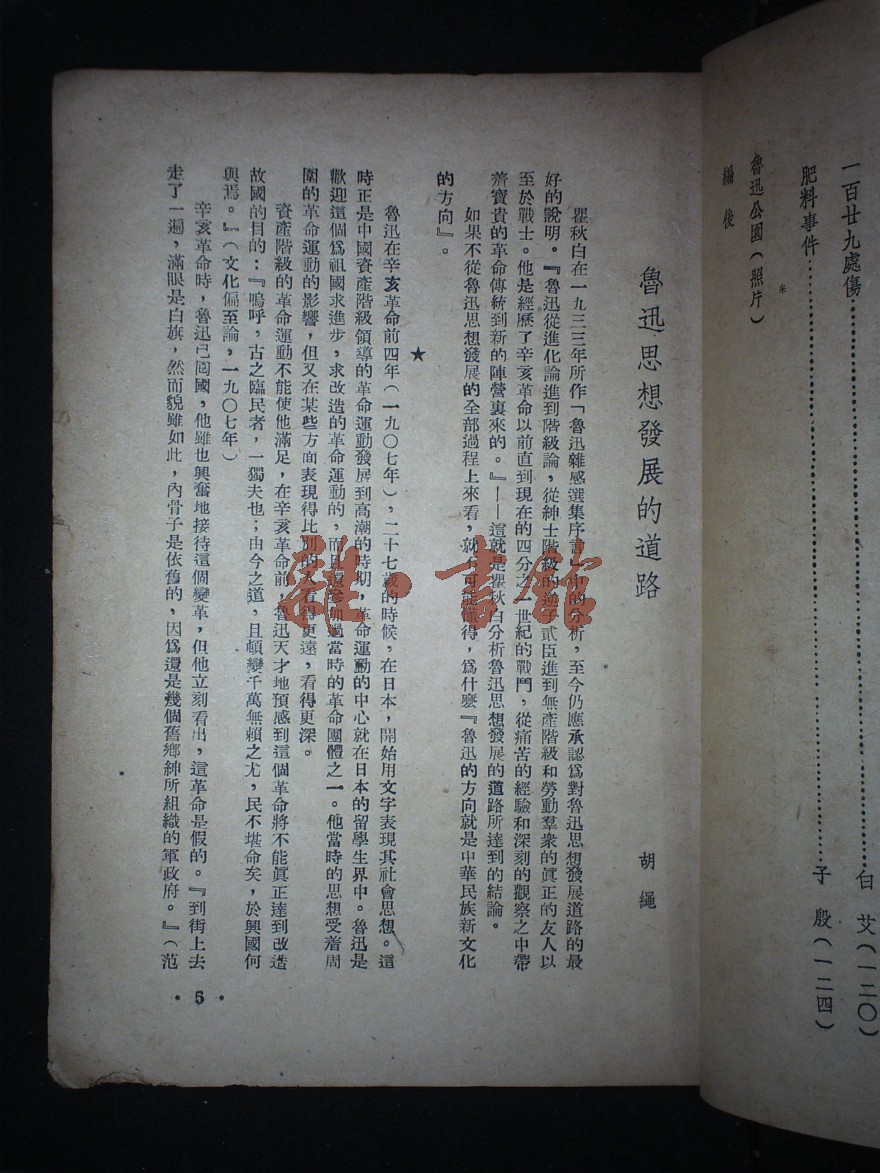 一百廿九處傷……白艾（一二〇）
肥料事件……子殷（一二四）
*
魯迅公園（照片）
編後
魯迅思想發展的道路
胡繩
瞿秋白在一九三三年所作「魯迅雜感選集序言」中的分析，至今仍應承認爲對魯迅思想發展道路的最
好的說明。『魯迅從進化論進到階級論，從紳士階級的逆子貳臣進到無產階級和勞動羣衆的眞正的友人以
至於戰士。他是經歷了辛亥革命以前直到現在的四分之一世紀的戰鬥，從痛苦的經驗和深刻的觀察之中帶
着寶貴的革命傳統到新的陣營裏來的。』——這就是瞿秋白分析魯迅思想發展的道路所達到的結論。
如果不從魯迅思想發展的全部過程上來看，就不可能懂得，爲什麽『魯迅的方向就是中華民族新文化
的方向』。
★
魯迅在辛亥革命前四年（一九〇七年），二十七歲的時候，在日本，開始用文字表現其社會思想。這
時正是中國資產階級領導的革命運動發展到高潮的時期，革命運動的中心就在日本的留學生界中。魯迅是
歡迎這個爲祖國求進步，求改造的革命運動的，而且還參加過當時的革命團體之一。他當時的思想受着周
圍的革命運動的影響，但又在某些方面表現得比別的人看得更遠，看得更深。
資產階級的革命運動不能使他滿足，在辛亥革命前，魯迅天才地預感到這個革命將不能眞正達到改造
故國的目的：『嗚呼，古之臨民者，一獨夫也；由今之道，且頓變千萬無賴之尤，民不堪命矣，於興國何
與焉。』（文化偏至論，一九〇七年）
辛亥革命時，魯迅已囘國，他雖也興奮地接待這個變革，但他立刻看出，這革命是假的。『到街上去
走了一遍，滿眼是白旗，然而貌雖如此，內骨子是依舊的，因爲還是幾個舊鄉紳所組織的軍政府。』（范
·5·
雜·書館